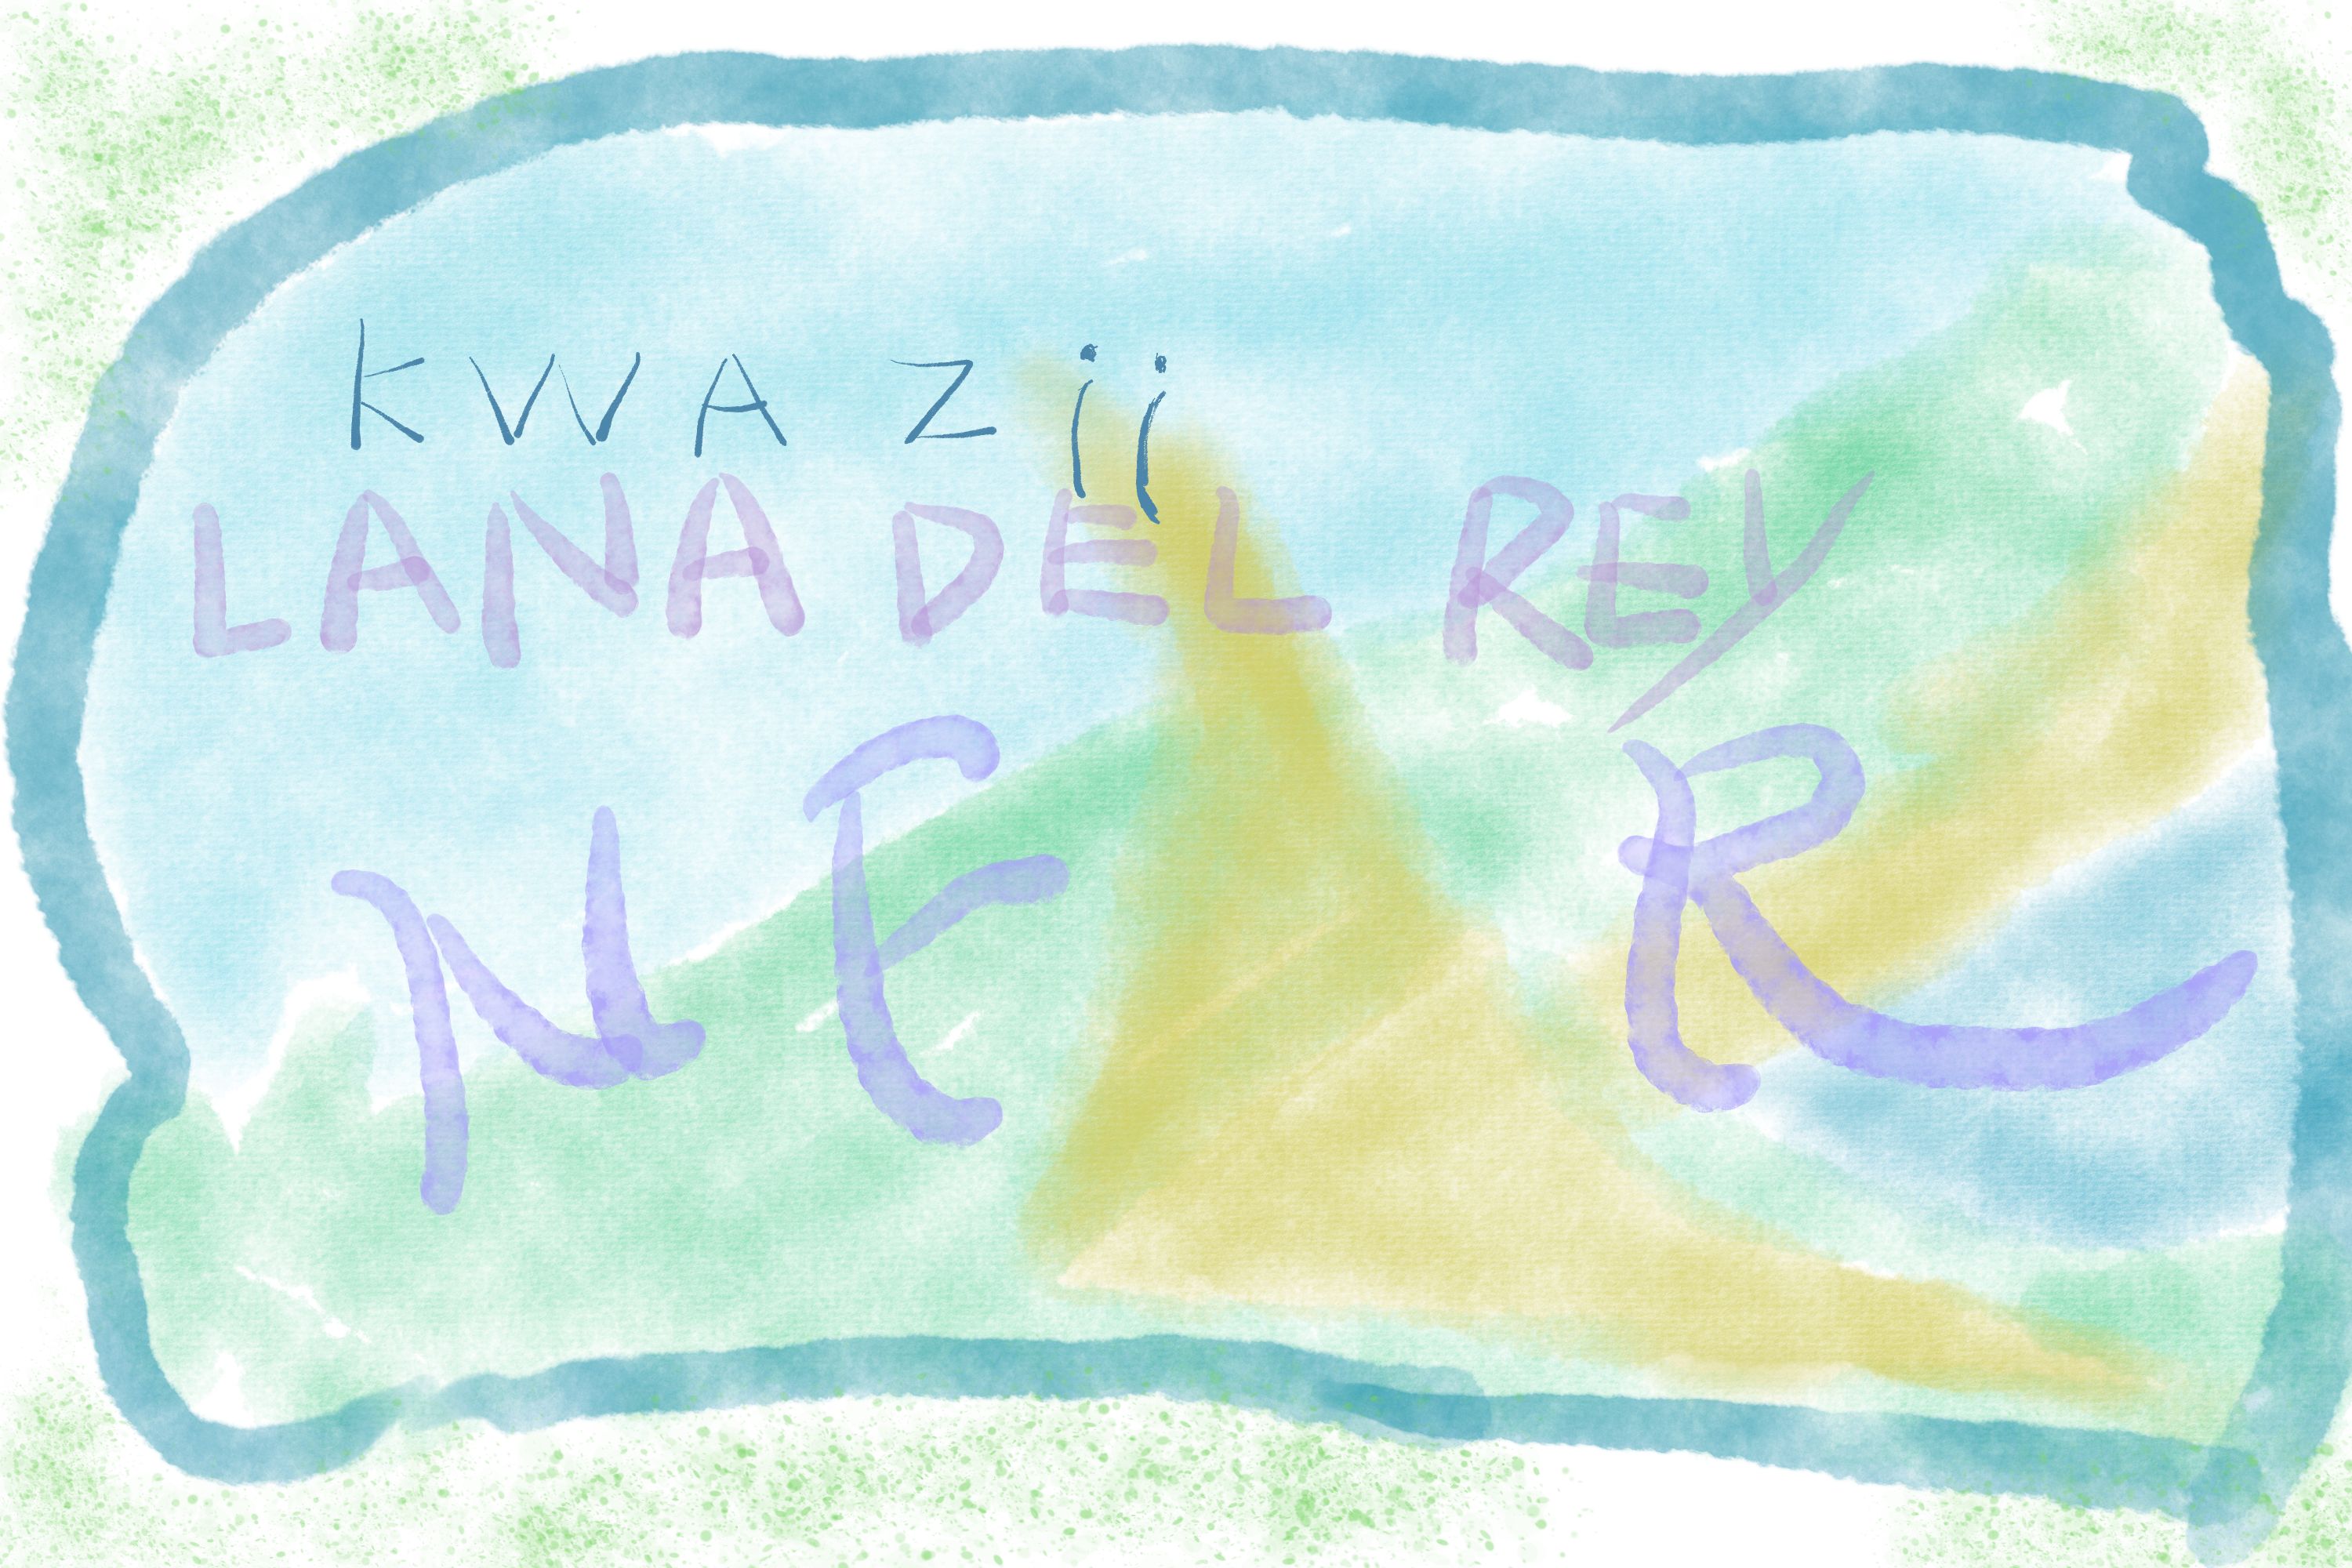 KWAZii
LANA DEL REY
NFR